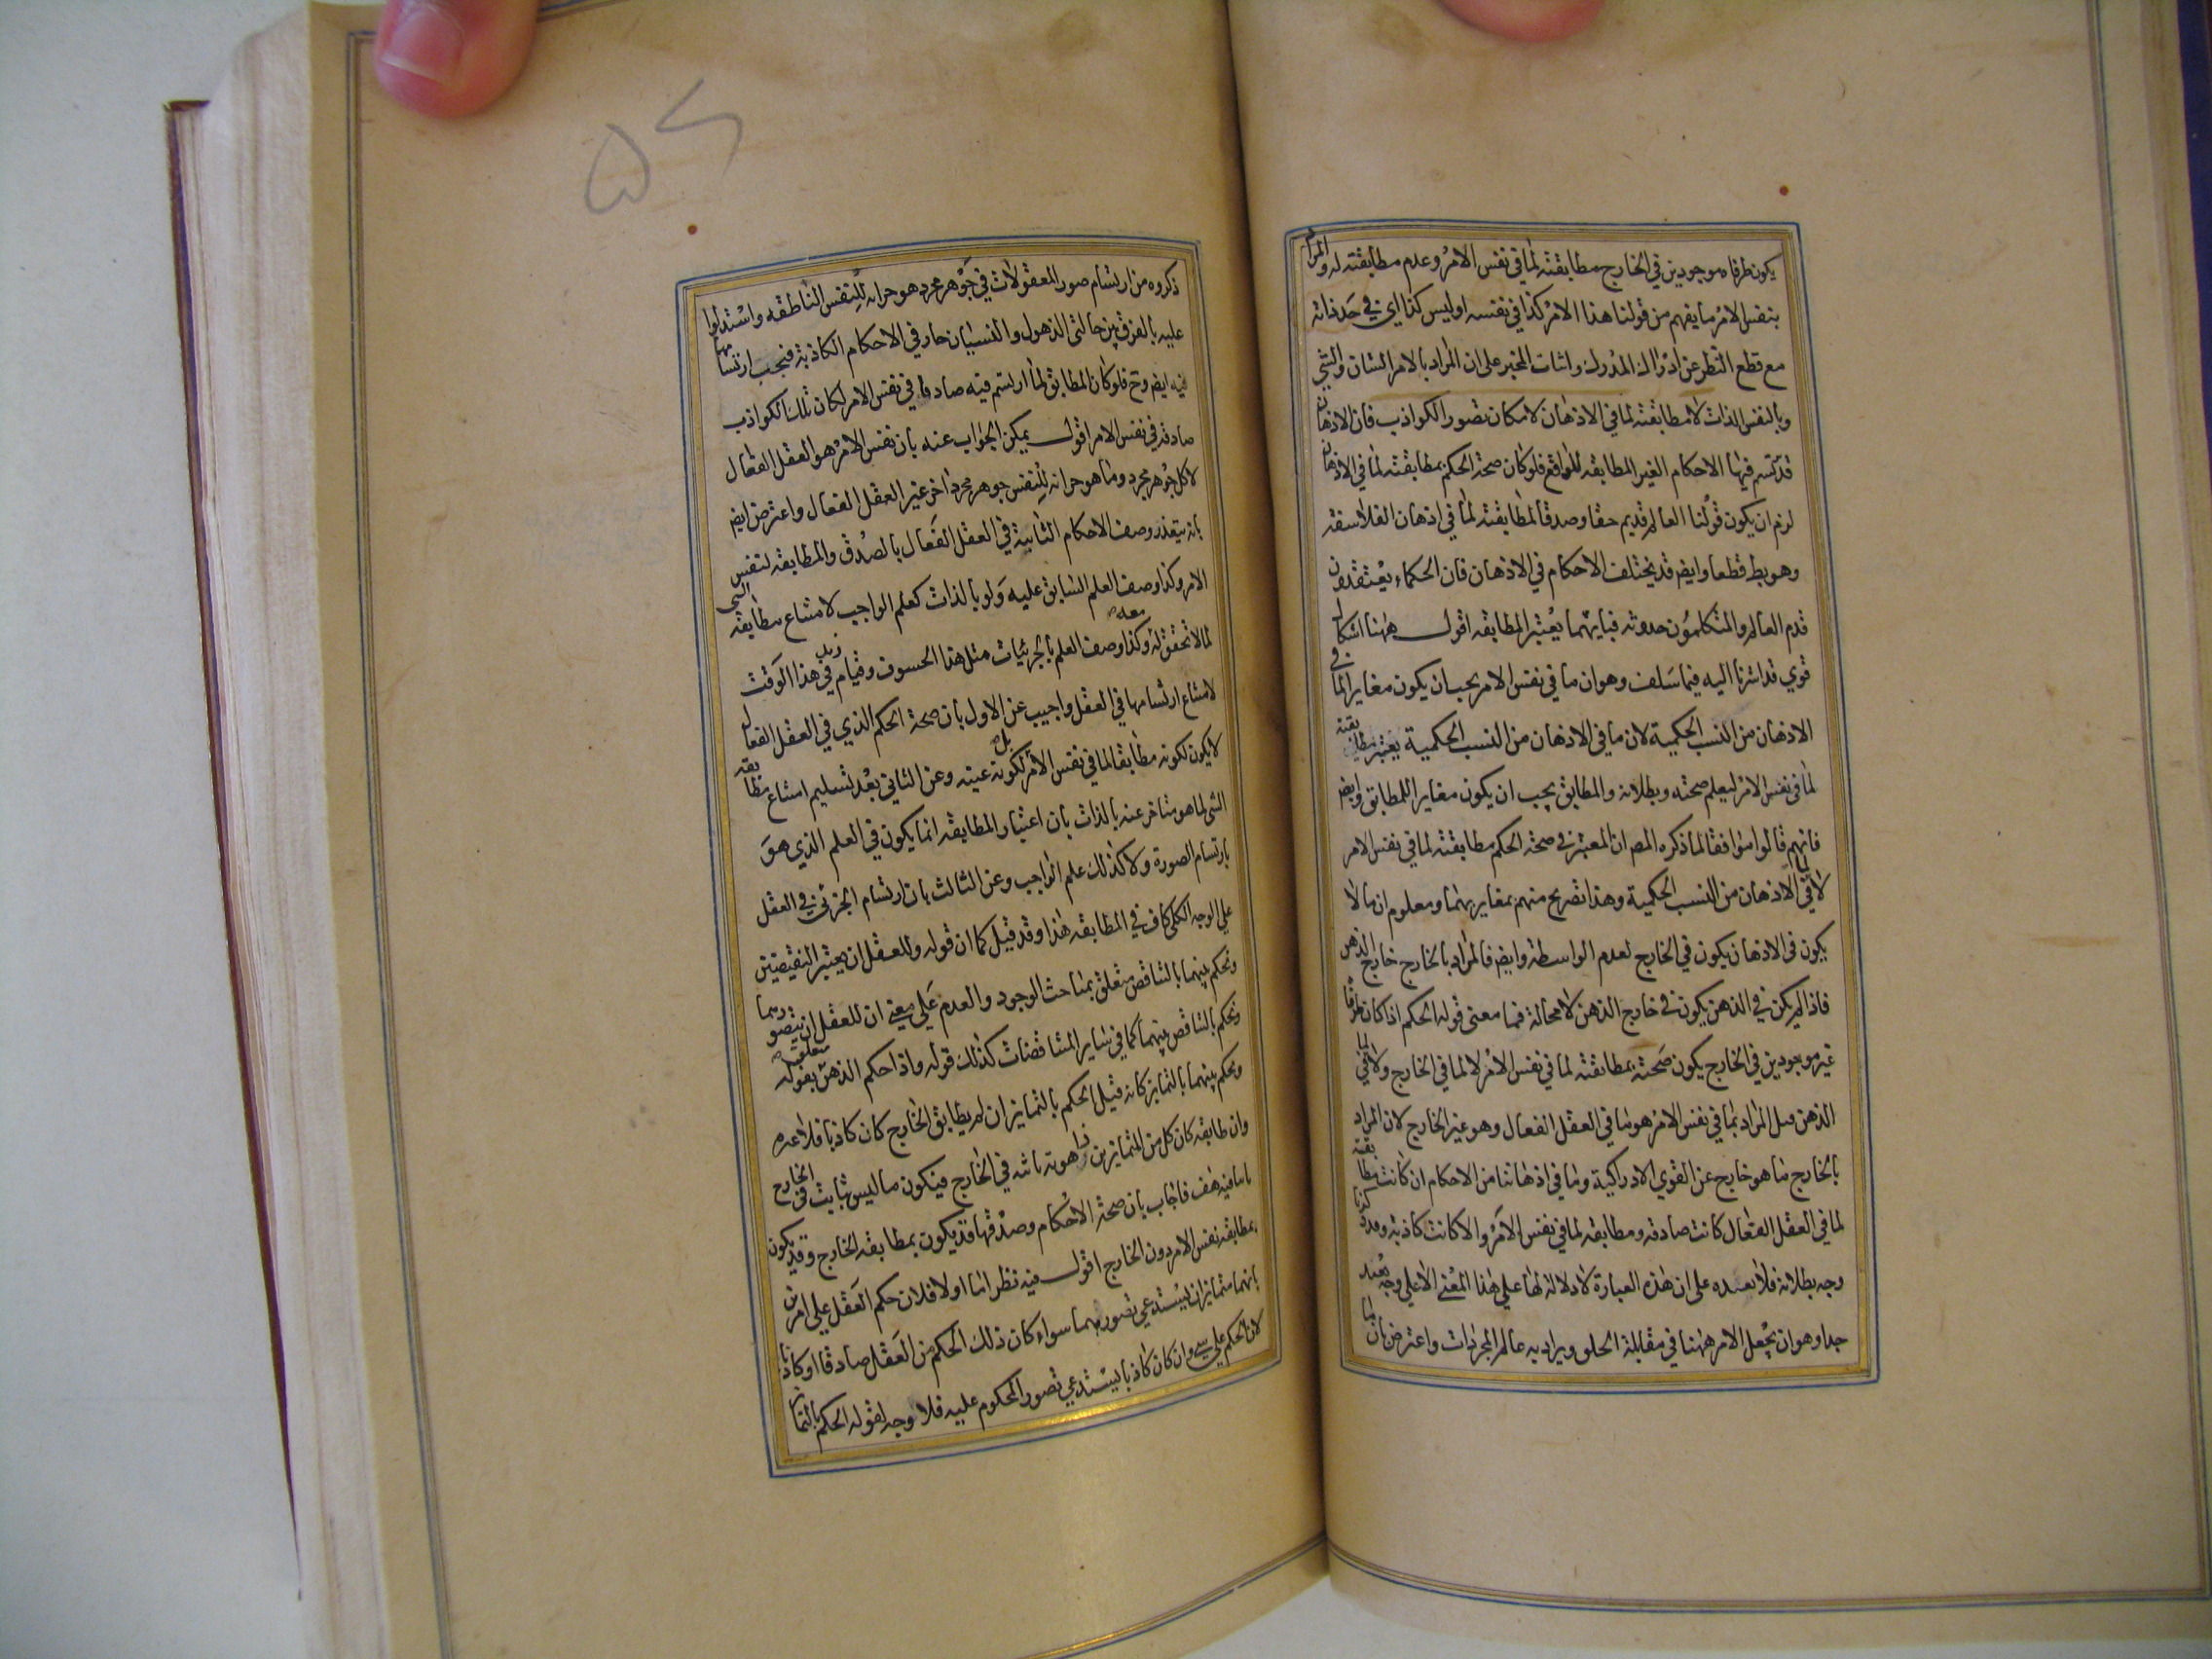 يكون طرفاه موجودين في الخارج مطابقته لما في نفس الامر وعدم مطابقته له والمراد
بنفس الامر ما يفهم من قولنا هذا الامر كذا في نفسه او ليس كذا اي في حد ذاته
مع قطع النظر عن ادراك المدرك واثبات المخبر على ان المراد بالامر الشان والشي
وبالنفس الذات لا مطابقته لما في الاذهان لامكان تصور الكواذب فان الاذهان
قد ترتسم فيها الاحكام الغير المطابقه للواقع فلو كان صحة الحكم بمطابقته لما في الاذهان
لزم ان يكون قولنا العالم قديم حقا وصدقا لمطابقته لما في اذهان الفلاسفه
وهو بط قطعا وايض قد يختلف الاحكام في الاذهان فان الحكماء يعتقدون
قدم العالم والمتكلمون حدوثه فبايهما يعتبر المطابقه اقول ههنا اشكال
قوي قد اشرنا اليه فيما سلف وهو ان ما في نفس الامر يجب ان يكون مغايرا لما في
الاذهان من النسب الحكمية لان ما في الاذهان من النسب الحكمية يعتبر مطابقته
لما في نفس الامر ليعلم صحته وبطلانه والمطابق يجب ان يكون مغايرا للمطابق وايض
فانهم قالوا موافقا لما ذكره المص ان المعتبر في صحة الحكم مطابقته لما في نفس الامر
لا لما في الاذهان من النسب الحكمية وهذا تصريح منهم بمغايرتهما ومعلوم ان ما لا
يكون في الاذهان يكون في الخارج لعدم الواسطة وايض فالمراد بالخارج خارج الذهن
فاذا لم يكن في الذهن يكون في خارج الذهن لا محالة فما معنى قوله الحكم اذا كان طرفا
غير موجودين في الخارج يكون صحته بمطابقته لما في نفس الامر لا لما في الخارج ولا لما في
الذهن قيل المراد بما في نفس الامر هو ما في العقل الفعال وهو غير الخارج لان المراد
بالخارج ما هو خارج عن القوي الادراكية وما في اذهاننا من الاحكام ان كانت مطابقته
لما في العقل الفعال كانت صادقه ومطابقه لما في نفس الامر والا كانت كاذبه وقد ذكرنا
وجه بطلانه فلا نعيده على ان هذه العبارة لا دلالة لها علي هذا المعني الا علي وجه بعيد
جدا وهو ان يجعل الامر ههنا في مقابلة الخلق ويراد به عالم المجردات واعترض بان ما
۵۲
ذكروه من ارتسام صور المعقولات في جوهر مجرد هو خزانه للنفس الناطقه واستدلوا
عليه بالفرق بين حالتي الذهول والنسيان جار في الاحكام الكاذبة فيجب ارتسامها
فيه ايض وح فلو كان المطابق لما ارتسم فيه صادقا في نفس الامر لكان تلك الكواذب
صادقه في نفس الامر اقول يمكن الجواب عنه بان نفس الامر هو العقل الفعال
لا كل جوهر مجرد وما هو خزانه للنفس جوهر مجرد اخر غير العقل الفعال واعترض ايض
بانه يتعذر وصف الاحكام الثابتة في العقل الفعال بالصدق والمطابقه لنفس
الامر وكذا وصف العلم السابق عليه ولو بالذات كعلم الواجب لامتناع مطابقه الشي
لما لا تحقق له معه وكذا وصف العلم بالجزئيات مثل هذا الخسوف وقيام زيد في هذا الوقت
لامتناع ارتسامها في العقل واجيب عن الاول بان صحة الحكم الذي في العقل الفعال
لا يكون لكونه مطابقا لما في نفس الامر بل لكونه عينه وعن الثاني بعد تسليم امتناع مطابقه
الشي لما هو متاخر عنه بالذات بان اعتبار المطابقه انما يكون في العلم الذي هو
بارتسام الصورة ولا كذلك علم الواجب وعن الثالث بان ارتسام الجزئي في العقل
علي الوجه الكلي كاف في المطابقه هذا وقد قيل كما ان قوله وللعقل ان يعتبر النقيضين
ويحكم بينهما بالتناقض متعلق بمباحث الوجود والعدم علي معني ان للعقل ان يتصورهما
ويحكم بالتناقض بينهما كما في ساير المتناقضات كذلك قوله واذا حكم الذهن متعلق بقوله
ويحكم بينهما بالتمايز كانه قيل الحكم بالتمايز ان لم يطابق الخارج كان كاذبا فلا عبره
وان طابقه كان كل من المتمايزين ذا هوية ثابته في الخارج فيكون ما ليس بثابت في الخارج
ثابتا فيه هف فاجاب بان صحة الاحكام وصدقها قد يكون بمطابقه الخارج وقد يكون
بمطابقه نفس الامر دون الخارج اقول فيه نظر اما اولا فلان حكم العقل علي امرين
بانهما متمايزان ليستدعي تصورهما سواء كان ذلك الحكم من العقل صادقا او كاذبا
لان الحكم علي شي وان كان كاذبا يستدعي تصور المحكوم عليه فلا وجه لقوله الحكم بالتمايز